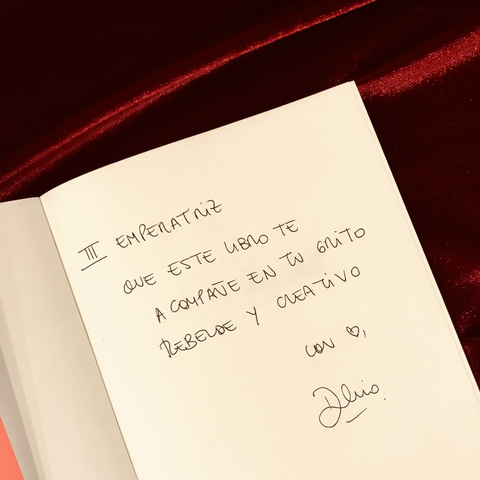 III EMPERATRIZ
QUE ESTE LIBRO TE
ACOMPAÑE EN TU GRITO
REBELDE Y CREATIVO
CON ♡,